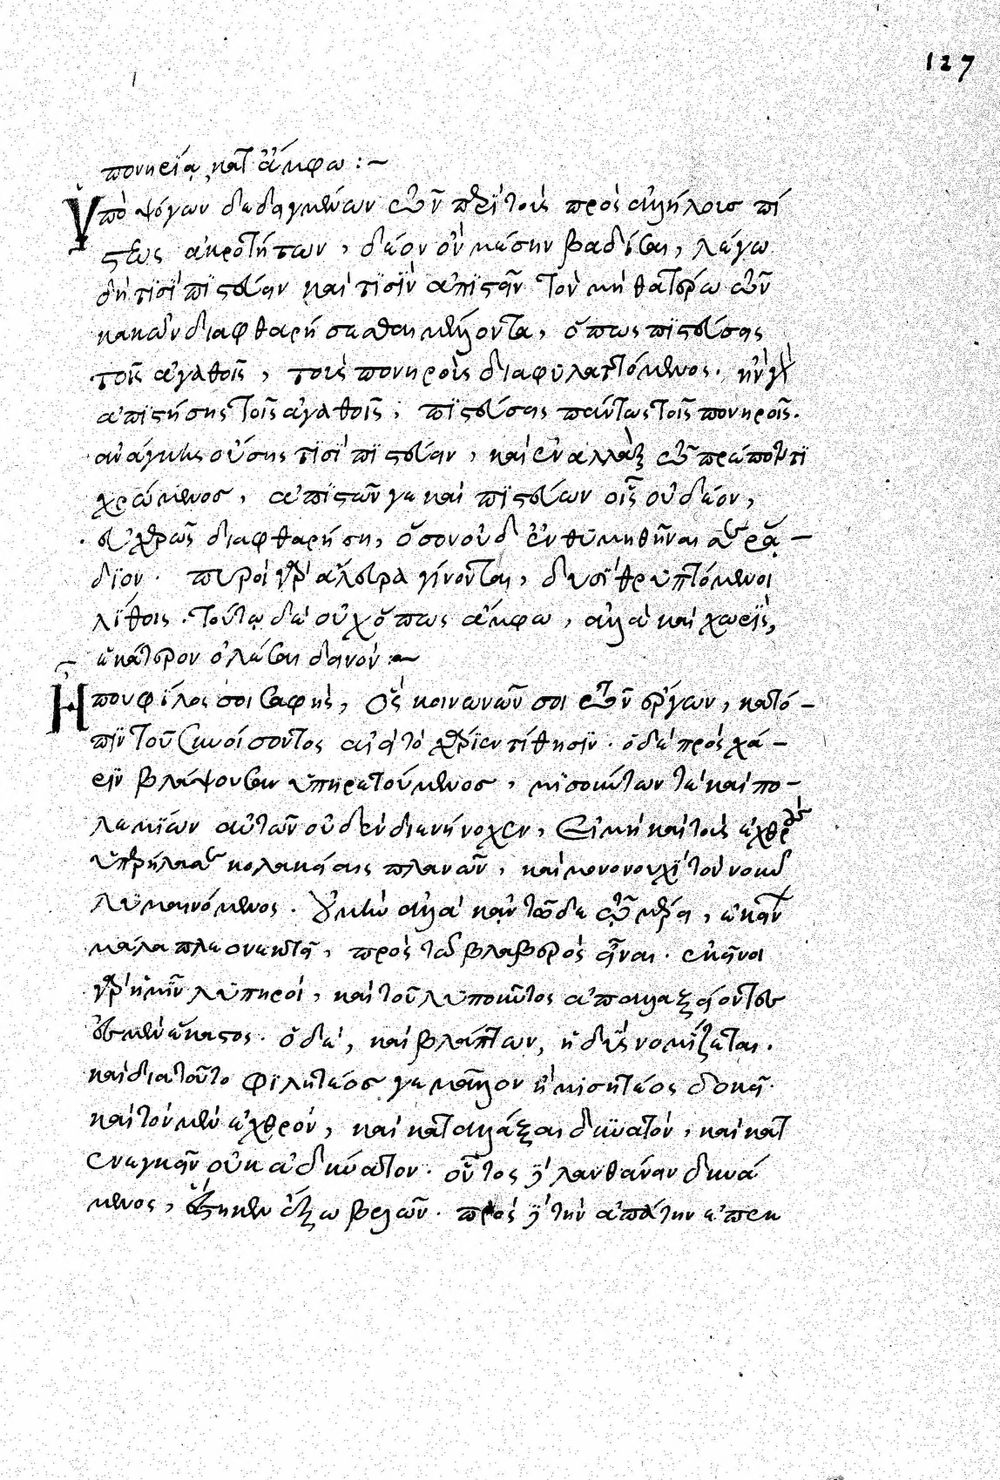 127
πονηρία, κατ' ἄμφω :~
Ὑπὸ ψόγων δεδηγμένων τῶν περὶ τοὺς πρὸς ἀλλήλους πί
στεως ἀκροτήτων, δέον οὖν μέσην βαδίσαι, λέγω
δή τισὶ πιστεύειν καί τισιν ἀπιστεῖν τὸν μὴ θατέρῳ τῶν
κακῶν διαφθαρήσεσθαι μέλλοντα, ὅπως πιστεύσῃς
τοῖς ἀγαθοῖς, τοὺς πονηροὺς διαφυλαττόμενος. ἢν γὰρ
ἀπιστήσῃς τοῖς ἀγαθοῖς, πιστεύσῃς πάντως τοῖς πονηροῖς.
ἀνάγκης οὔσης τισὶ πιστεύειν, καὶ ἐναλλὰξ τῷ πρέποντι
χρώμενος, ἀπιστῶν γε καὶ πιστεύων οἷς οὐ δέον,
αἰσχρῶς διαφθαρήσῃ, ὅσον οὐδ' ἐνθυμηθῆναι ῥᾴ–
διον. πυροὶ γὰρ ἄλευρα γίνονται, δυσὶ θρυπτόμενοι
λίθοις. τούτῳ δὲ οὐχ ὅπως ἄμφω, ἀλλὰ καὶ χωρὶς,
ἑκάτερον ὀλέσαι δεινόν :~
Ἥπου φίλος σοι σαφὴς, ὃς κοινωνῶν σοι τῶν ἔργων, κατό–
πιν τοῦ συνοίσοντος ἀεὶ τὸ χαρίεν τίθησιν. ὁ δὲ πρὸς χά–
ριν βλάψουσαν ὑπηρετούμενος, μισούντων τε καὶ πο–
λεμίων αὐτῶν οὐδὲν διενήνοχεν, εἰ μὴ καὶ τοὺς ἐχθροὺς
κολακείαις πλανῶν, καὶ μονονουχὶ τὸν νοῦν
λυμαινόμενος. ἡμῖν ἀλλὰ κἂν τῷδε τῷ μέρει, ἐκεῖν
μάλα πλεονεκτεῖ, πρὸς τῷ βλαβερὸς εἶναι. ἐκεῖνοι
γὰρ ἡμῖν λυπηροὶ, καὶ τοῦ λυποῦντος ἀπαλλαξείοντες
ἐσμὲν ἕκαστος. ὁ δὲ, καὶ βλάπτων, ἡδὺς νομίζεται.
καὶ διατοῦτο φιλητέος γε μᾶλλον ἢ μισητέος δοκεῖ.
καὶ τὸν μὲν ἐχθρὸν, καὶ κατ ἀλλάξαι δυνατὸν, καὶ κατ
ἐνεγκεῖν οὐκ ἀδύνατον. οὗτος δὲ λανθάνειν δυνά
μενος, ἕστηκεν ἔξω βελῶν. πρὸς δὲ τὴν ἀπάτην ἐπει